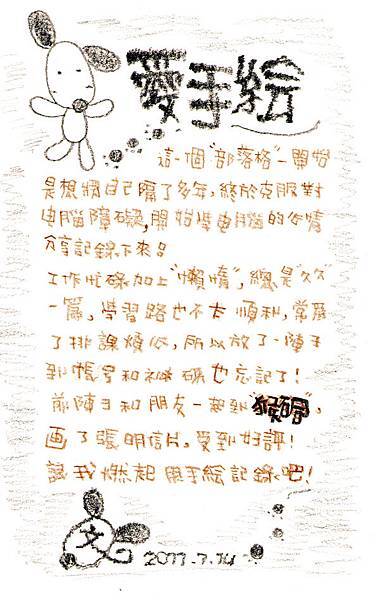 愛手絵
這一個"部落格"一開始
是想將自己隔了多年,終於克服對
电腦障礙,開始學电腦的心情
分享記錄下來。
工作忙碌加上"懶惰",總是"久久"
一篇,學習路也不太順利,常爲
了排課煩心,所以放了一陣子
到帳号和祕碼也忘記了!
前陣子和朋友一起到"猴硐",
画了張明信片,受到好評!
讓我燃起用手絵記錄吧!
文
2011.7.14